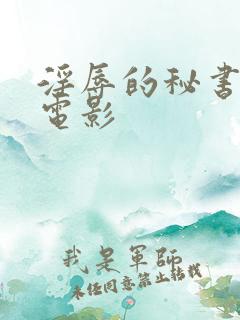 淫辱的秘書
電影
我是軍師
未经同意禁止转载